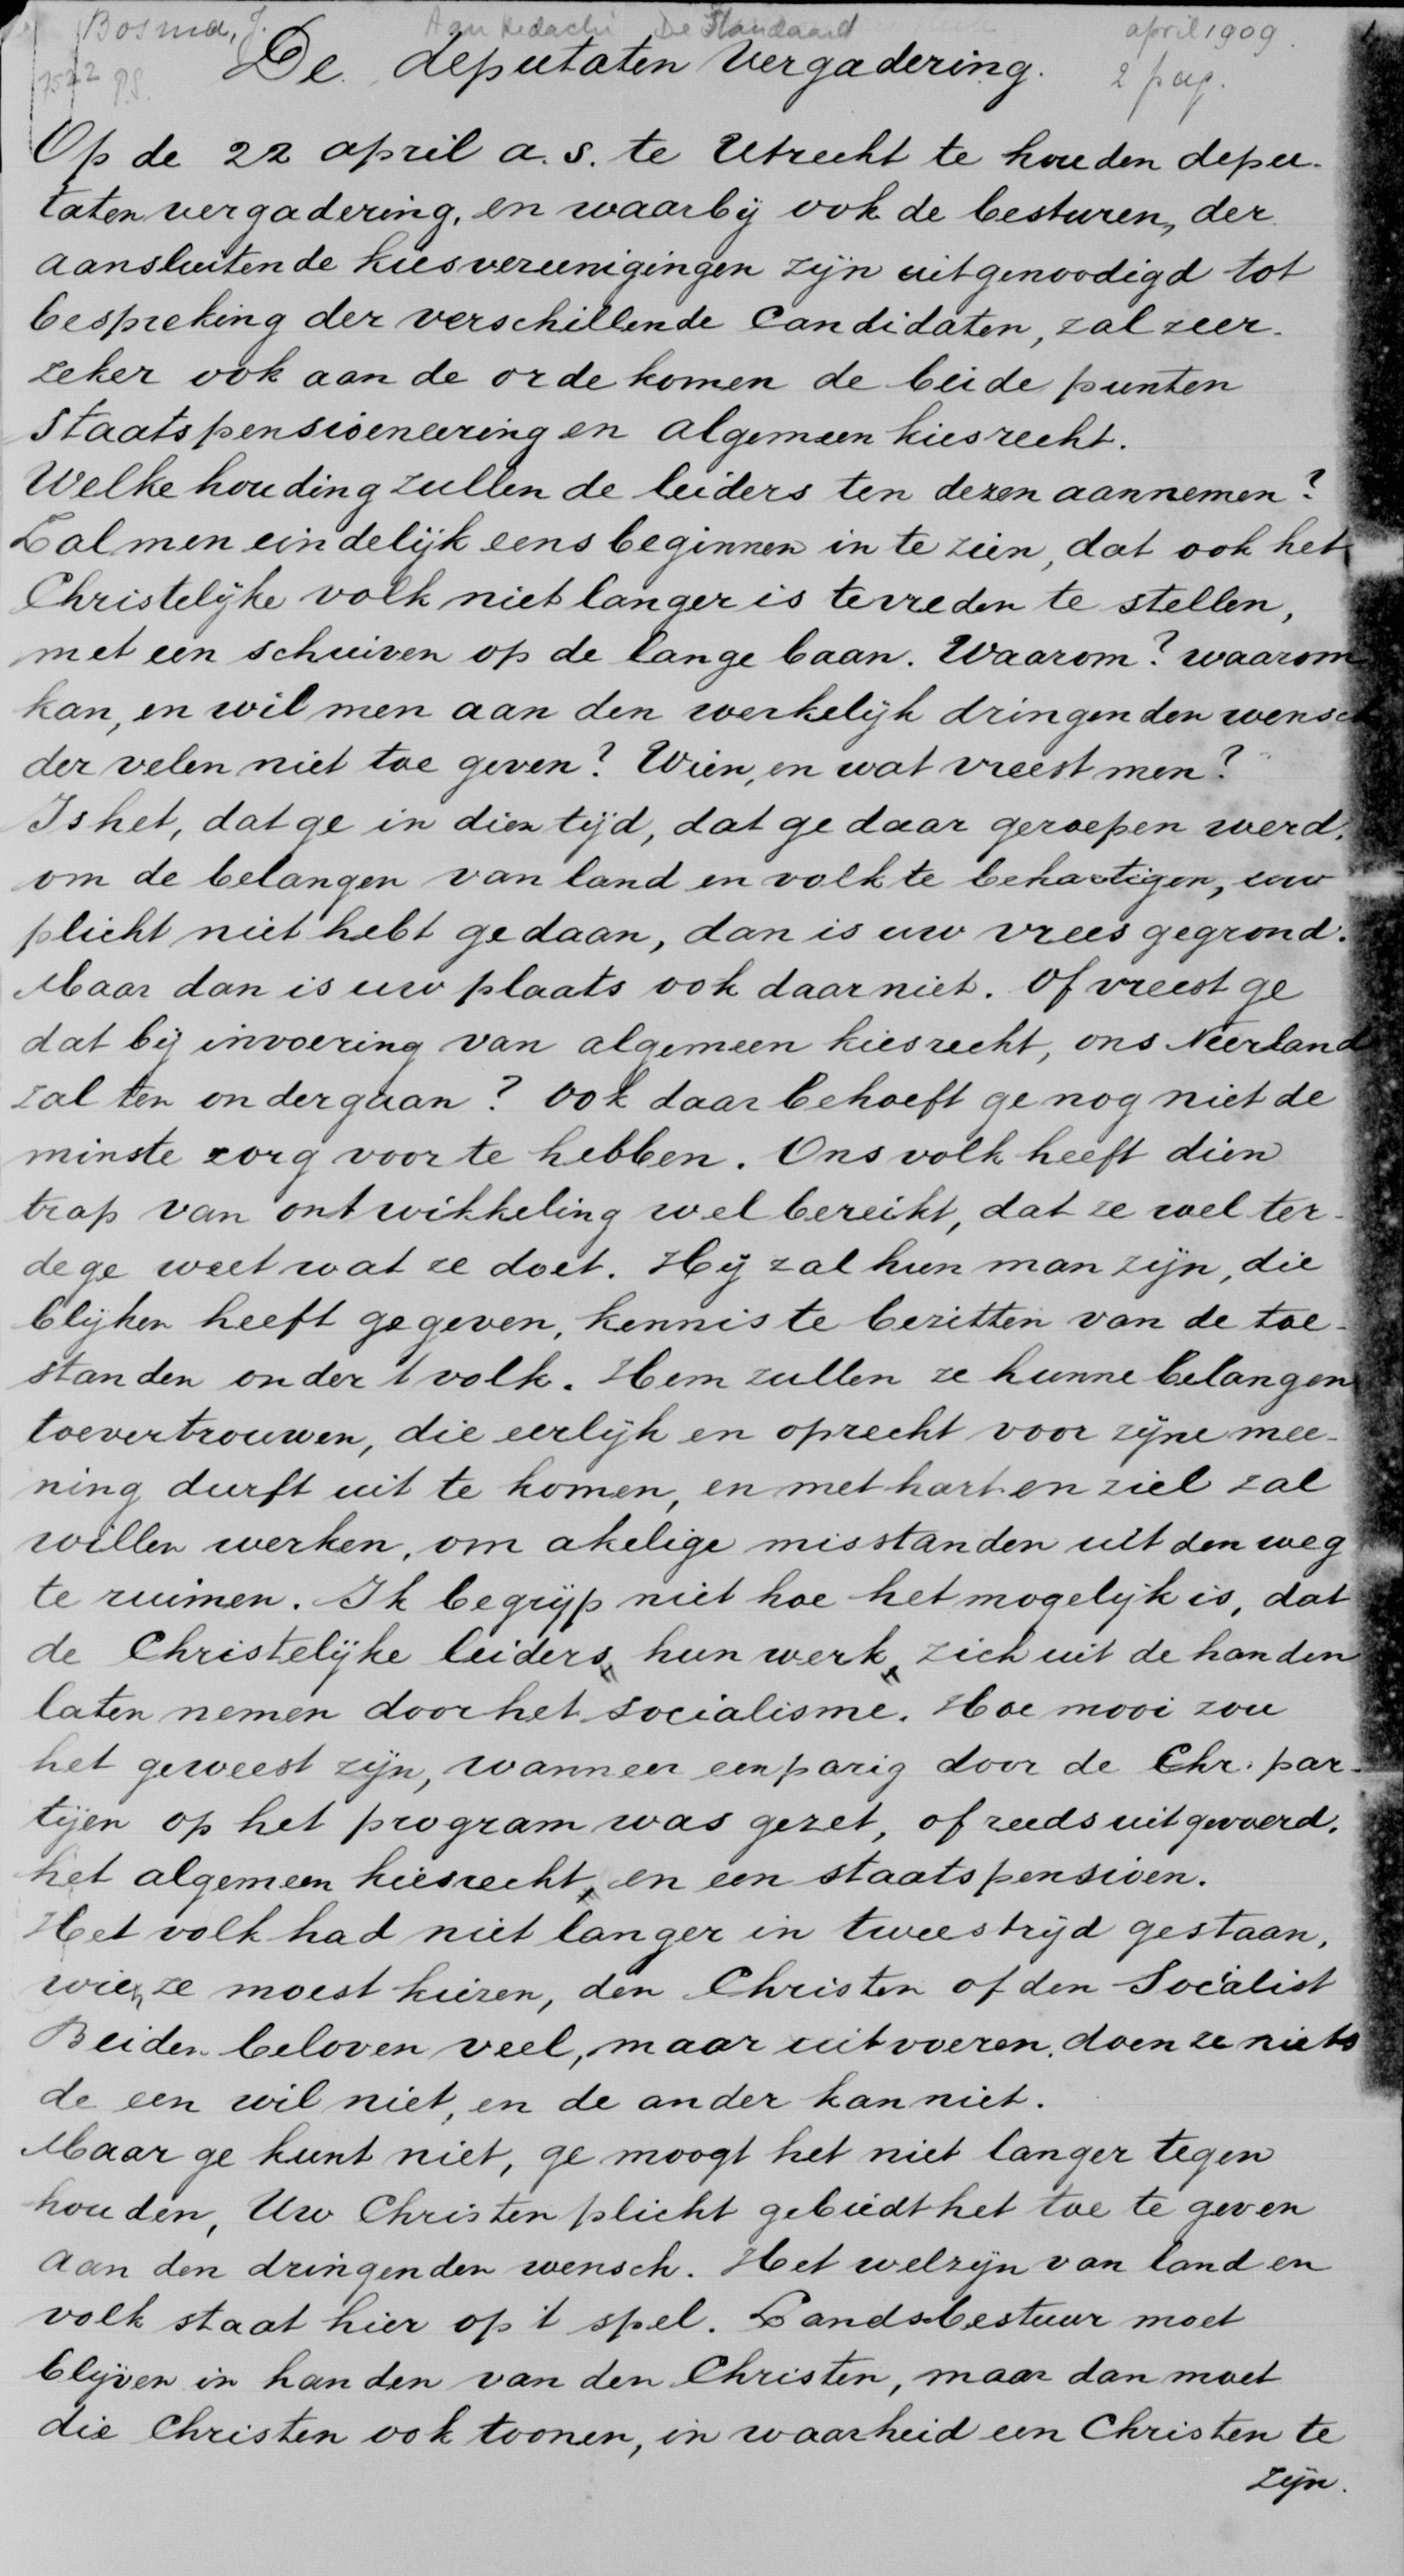 Bosma, J. Aan Redactie De Standaard april 1909. 1
7572 P.S. 2 pag.
De deputaten vergadering.
Op de 22 april a.s. te Utrecht te houden depu-
taten vergadering, en waarbij ook de besturen, der
aansluitende kiesvereenigingen zijn uitgenoodigd tot
bespreking der verschillende Candidaten, zal zeer
zeker ook aan de orde komen de beide punten
staatspensioeneering en algemeen kiesrecht.
Welke houding zullen de leiders ten dezen aannemen?
Zal men eindelijk eens beginnen in te zien, dat ook het
Christelijke volk niet langer is tevreden te stellen,
met een schuiven op de lange baan. Waarom? waarom
kan, en wil men aan den werkelijk dringenden wensch
der velen niet toe geven? Wien, en wat vreest men?
Is het, dat ge in dien tijd, dat ge daar geroepen werd,
om de belangen van land en volk te behartigen, uw
plicht niet hebt gedaan, dan is uw vrees gegrond.
Maar dan is uw plaats ook daar niet. Of vreest ge
dat bij invoering van algemeen kiesrecht, ons Neerland
zal ten ondergaan? Ook daar behoeft ge nog niet de
minste zorg voor te hebben. Ons volk heeft dien
trap van ontwikkeling wel bereikt, dat ze wel ter-
dege weet wat ze doet. Hij zal hun man zijn, die
blijken heeft gegeven, kennis te bezitten van de toe-
standen onder 't volk. Hem zullen ze hunne belangen
toevertrouwen, die eerlijk en oprecht voor zijne mee-
ning durft uit te komen, en met hart en ziel zal
willen werken, om akelige misstanden uit den weg
te ruimen. Ik begrijp niet hoe het mogelijk is, dat
de Christelijke leiders, hun werk, zich uit de handen
laten nemen door het socialisme. Hoe mooi zou
het geweest zijn, wanneer eenparig door de Chr. par-
tijen op het program was gezet, of reeds uitgevoerd,
het algemeen kiesrecht, en een staatspensioen.
Het volk had niet langer in tweestrijd gestaan,
wien ze moest kiezen, den Christen of den Socialist
Beiden beloven veel, maar uitvoeren, doen ze niets
de een wil niet, en de ander kan niet.
Maar ge kunt niet, ge moogt het niet langer tegen
houden, Uw Christenplicht gebiedt het toe te geven
aan den dringenden wensch. Het welzijn van land en
volk staat hier op 't spel. Landsbestuur moet
blijven in handen van den Christen, maar dan moet
die Christen ook toonen, in waarheid een Christen te
zijn.